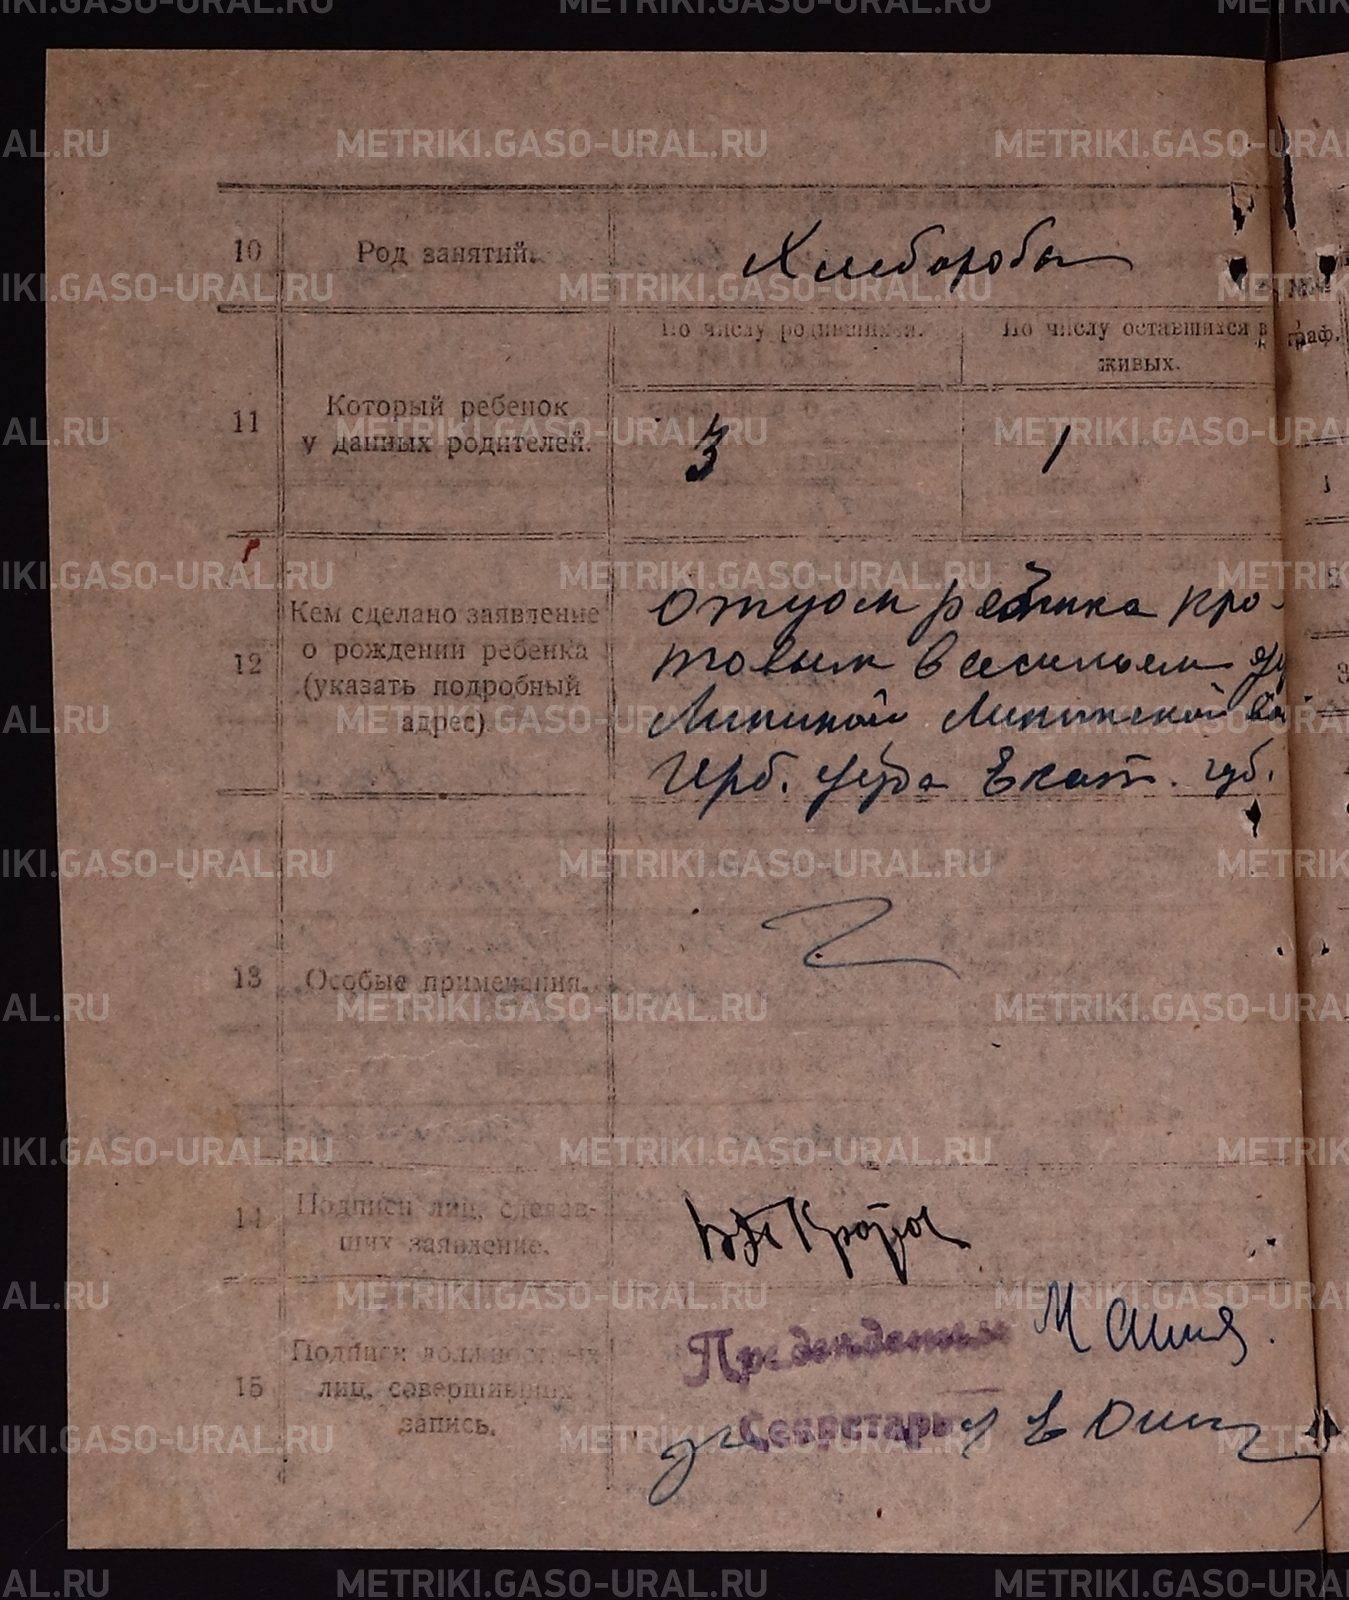 10 Род занятий. Хлеборобы
По числу родившихся. По числу оставшихся в живых.
11 Который ребенок
у данных родителей. 3 1
12 Кем сделано заявление
о рождении ребенка
(указать подробный
адрес)
Отцом ребенка Кро-
товым Васильем
Липиной Липинской
Ирб. уезда Екат. губ.
13 Особые примечания.
14 Подписи лиц, сделав-
ших заявление. Кротов
15 Подписи должностных
лиц, совершивших
запись.
Председатель
Секретарь
граф.
1
METRIKI.GASO-URAL.RU